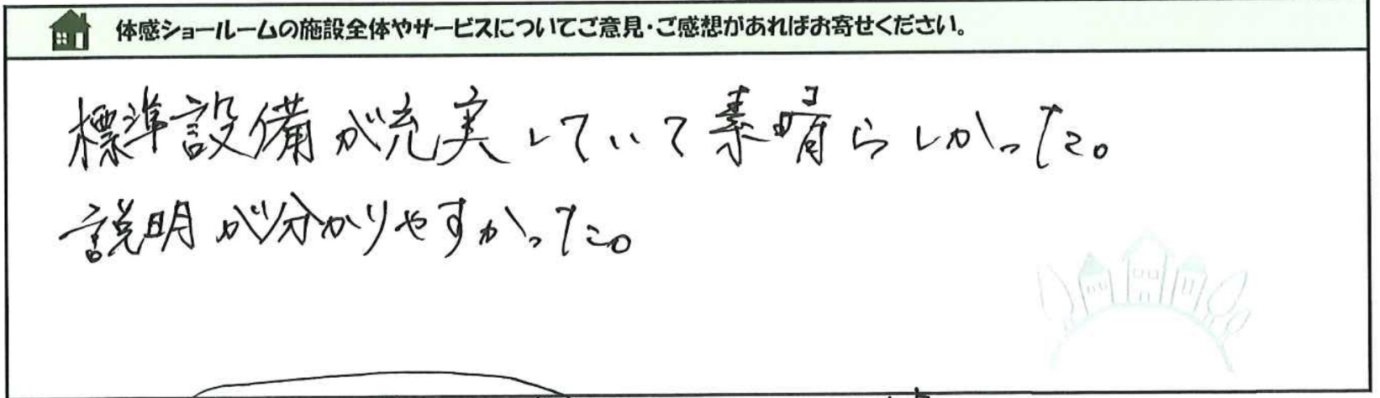 体感ショールームの施設全体やサービスについてご意見・ご感想があればお寄せください。
標準設備が充実していて素晴らしかった。
説明が分かりやすかった。